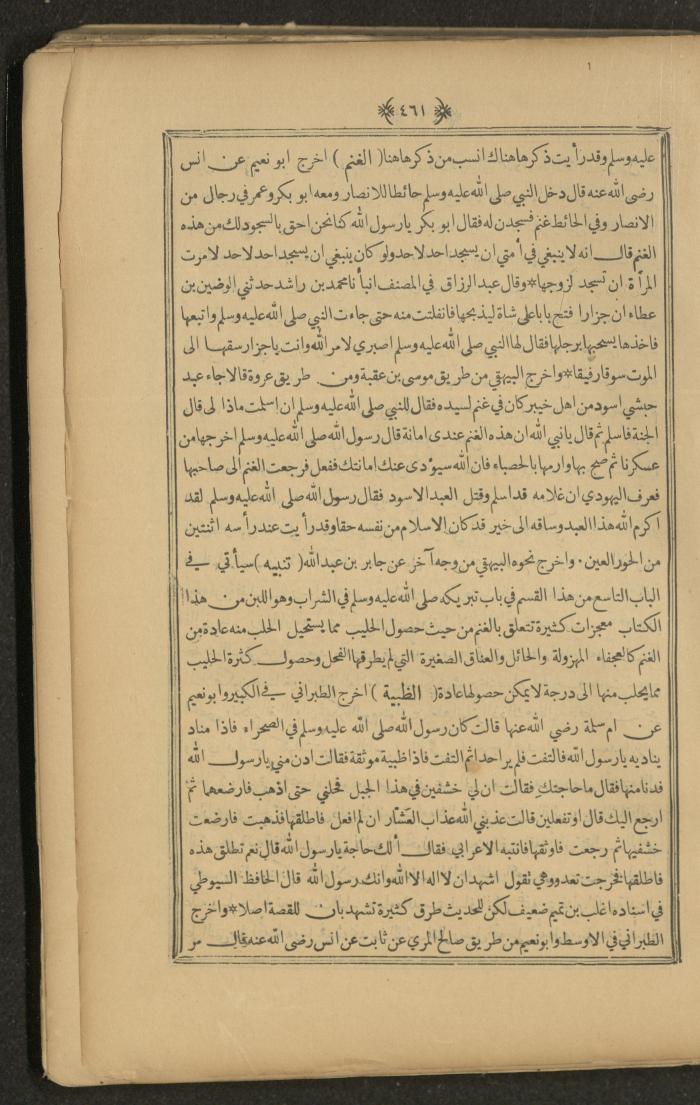 ٤٦١
عليه وسلم وقد رأيت ذكرها هناك انسب من ذكرها هنا ( الغنم ) اخرج ابو نعيم عن انس
رضى الله عنه قال دخل النبي صلى الله عليه وسلم حائطا للانصار ومعه ابو بكر وعمر في رجال من
الانصار وفي الحائط غنم فسجدن له فقال ابو بكر يارسول الله كنا نحن احق بالسجود لك من هذه
الغنم قال انه لا ينبغي في أمتي ان يسجد احد لاحد ولو كان ينبغي ان يسجد احد لاحد لامرت
المرأة ان تسجد لزوجها * وقال عبد الرزاق في المصنف انبأنا محمد بن راشد حدثني الوضين بن
عطاء ان جزارا فتح بابا على شاة ليذبحها فانفلتت منه حتى جاءت النبي صلى الله عليه وسلم واتبعها
فاخذها يسحبها برجلها فقال لها النبي صلى الله عليه وسلم اصبري لامر الله وانت يا جزار سقها الى
الموت سوقا رفيقا * واخرج البيهقي من طريق موسى بن عقبة ومن طريق عروة قالا جاء عبد
حبشي اسود من اهل خيبر كان في غنم لسيده فقال للنبي صلى الله عليه وسلم ان اسلمت ماذا لى قال
الجنة فاسلم ثم قال يانبي الله ان هذه الغنم عندى امانة قال رسول الله صلى الله عليه وسلم اخرجها من
عسكرنا ثم صح بها وارمها بالحصباء فان الله سيؤدى عنك امانتك ففعل فرجعت الغنم الى صاحبها
فعرف اليهودي ان غلامه قد اسلم وقتل العبد الاسود فقال رسول الله صلى الله عليه وسلم لقد
اكرم الله هذا العبد وساقه الى خير قد كان الاسلام من نفسه حقا وقد رأيت عند رأسه اثنتين
من الحور العين . واخرج نحوه البيهقي من وجه آخر عن جابر بن عبد الله ( تنبيه ) سيأتي في
الباب التاسع من هذا القسم في باب تبريكه صلى الله عليه وسلم في الشراب وهو اللبن من هذا
الكتاب معجزات كثيرة تتعلق بالغنم من حيث حصول الحليب مما يستحيل الحلب منه عادة من
الغنم كالعجفاء المهزولة والحائل والعناق الصغيرة التي لم يطرقها الفحل وحصول كثرة الحليب
مما يحلب منها الى درجة لا يمكن حصولها عادة ( الظبية ) اخرج الطبراني في الكبير وابو نعيم
عن ام سلمة رضي الله عنها قالت كان رسول الله صلى الله عليه وسلم في الصحراء فاذا مناد
يناديه يارسول الله فالتفت فلم ير احدا ثم التفت فاذا ظبية موثقة فقالت ادن مني يارسول الله
فدنا منها فقال ما حاجتك فقالت ان لي خشفين في هذا الجبل فحلني حتى اذهب فارضعهما ثم
ارجع اليك قال اوتفعلين قالت عذبني الله عذاب العشار ان لم افعل فاطلقها فذهبت فارضعت
خشفيها ثم رجعت فاوثقها فانتبه الاعرابي فقال ألك حاجة يارسول الله قال نعم تطلق هذه
فاطلقها فخرجت تعدو وهي تقول اشهد ان لا اله الا الله وانك رسول الله قال الحافظ السيوطي
في اسناده اغلب بن تميم ضعيف لكن للحديث طرق كثيرة تشهد بان للقصة اصلا * واخرج
الطبراني في الاوسط وابو نعيم من طريق صالح المري عن ثابت عن انس رضى الله عنه قال مر